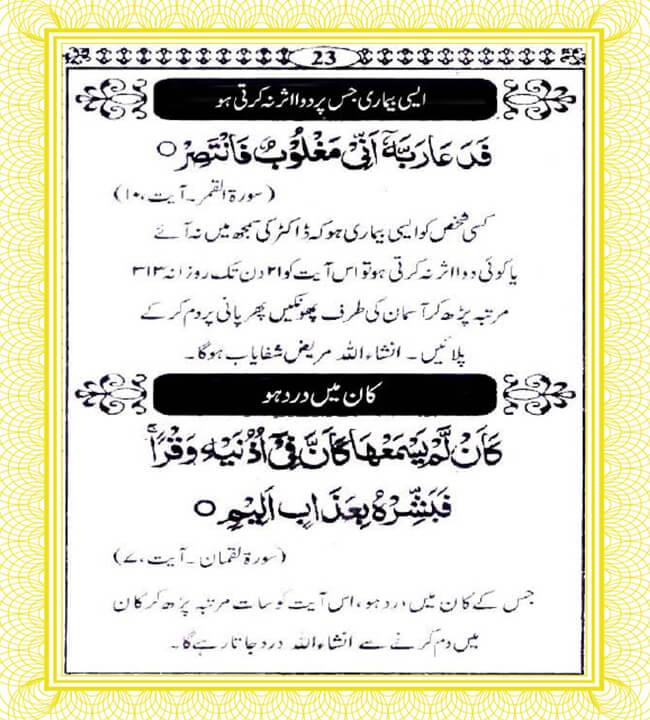 23
ایسی بیماری جس پر دوا اثر نہ کرتی ہو
فَدَعَا رَبَّهٗۤ اَنِّیْ مَغْلُوْبٌ فَانْتَصِرْ ○
(سورۃ القمر۔ آیت ۱۰)
کسی شخص کو ایسی بیماری ہو کہ ڈاکٹر کی سمجھ میں نہ آئے
یا کوئی دوا اثر نہ کرتی ہو تو اس آیت کو ۲۱ دن تک روزانہ ۳۱۳
مرتبہ پڑھ کر آسمان کی طرف پھونکیں پھر پانی پر دم کر کے
پلائیں ۔ انشاء اللہ مریض شفایاب ہوگا ۔
کان میں درد ہو
كَاَنْ لَّمْ یَسْمَعْهَا كَاَنَّ فِیْۤ اُذُنَیْهِ وَقْرًاۚ
فَبَشِّرْهُ بِعَذَابٍ اَلِیْمٍ ○
(سورۃ لقمان ۔ آیت ۷)
جس کے کان میں درد ہو، اس آیت کو سات مرتبہ پڑھ کر کان
میں دم کرنے سے انشاء اللہ درد جاتا رہے گا ۔